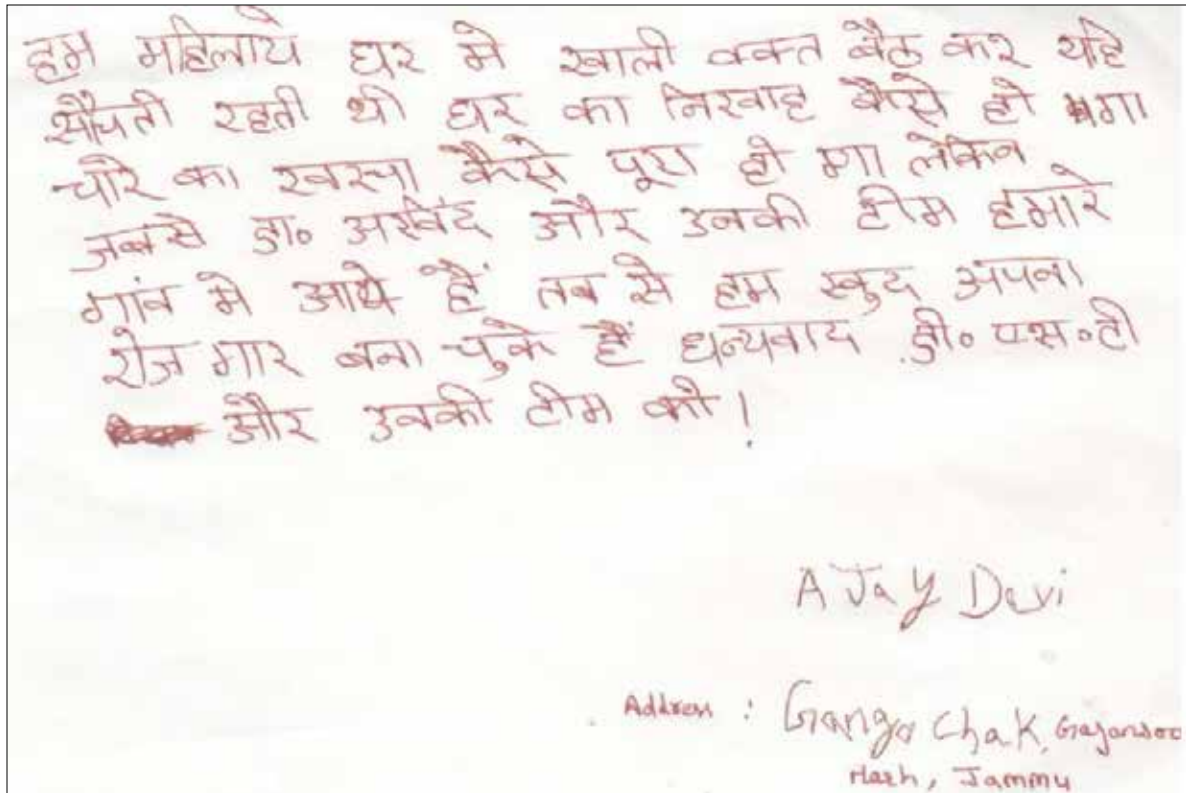 हम महिलाये घर मे खाली वक्त बैठ कर यहि
सोचती रहती थी घर का निरवाह कैसे हो गा
चोरे का खरचा कैसे पूरा हो गा लेकिन
जबसे डा॰ अरविंद और उनकी टीम हमारे
गांव मे आये हैं तब से हम खुद अपना
रोज गार बना चुके हैं धन्यवाद डी॰ एस॰ टी
और उनकी टीम को!
AJay Devi
Address : Ganga Chak, Gajansoo
Marh, Jammu